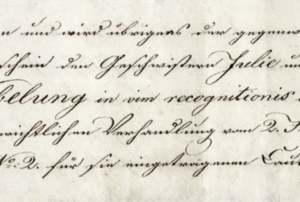 n und wird übrigens der gegenw
schein den Geschwistern Julie u
belung in vim recognitionis
erichtlichen Verhandlung vom 2. 
No: 2. für sie eingetragenen Caut